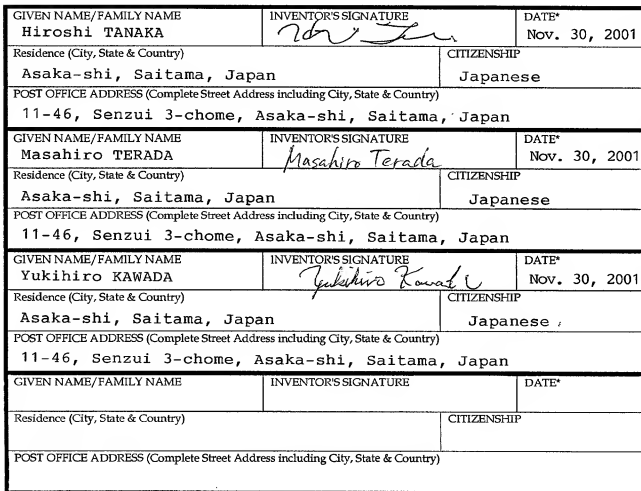 GIVEN NAME/FAMILY NAME INVENTOR'S SIGNATURE DATE*
Hiroshi TANAKA Nov. 30, 2001
Residence (City, State & Country) CITIZENSHIP
Asaka-shi, Saitama, Japan Japanese
POST OFFICE ADDRESS (Complete Street Address including City, State & Country)
11-46, Senzui 3-chome, Asaka-shi, Saitama, Japan
GIVEN NAME/FAMILY NAME INVENTOR'S SIGNATURE DATE*
Masahiro TERADA Masahiro Terada Nov. 30, 2001
Residence (City, State & Country) CITIZENSHIP
Asaka-shi, Saitama, Japan Japanese
POST OFFICE ADDRESS (Complete Street Address including City, State & Country)
11-46, Senzui 3-chome, Asaka-shi, Saitama, Japan
GIVEN NAME/FAMILY NAME INVENTOR'S SIGNATURE DATE*
Yukihiro KAWADA Yukihiro Nov. 30, 2001
Residence (City, State & Country) CITIZENSHIP
Asaka-shi, Saitama, Japan Japanese
POST OFFICE ADDRESS (Complete Street Address including City, State & Country)
11-46, Senzui 3-chome, Asaka-shi, Saitama, Japan
GIVEN NAME/FAMILY NAME INVENTOR'S SIGNATURE DATE*
Residence (City, State & Country) CITIZENSHIP
POST OFFICE ADDRESS (Complete Street Address including City, State & Country)